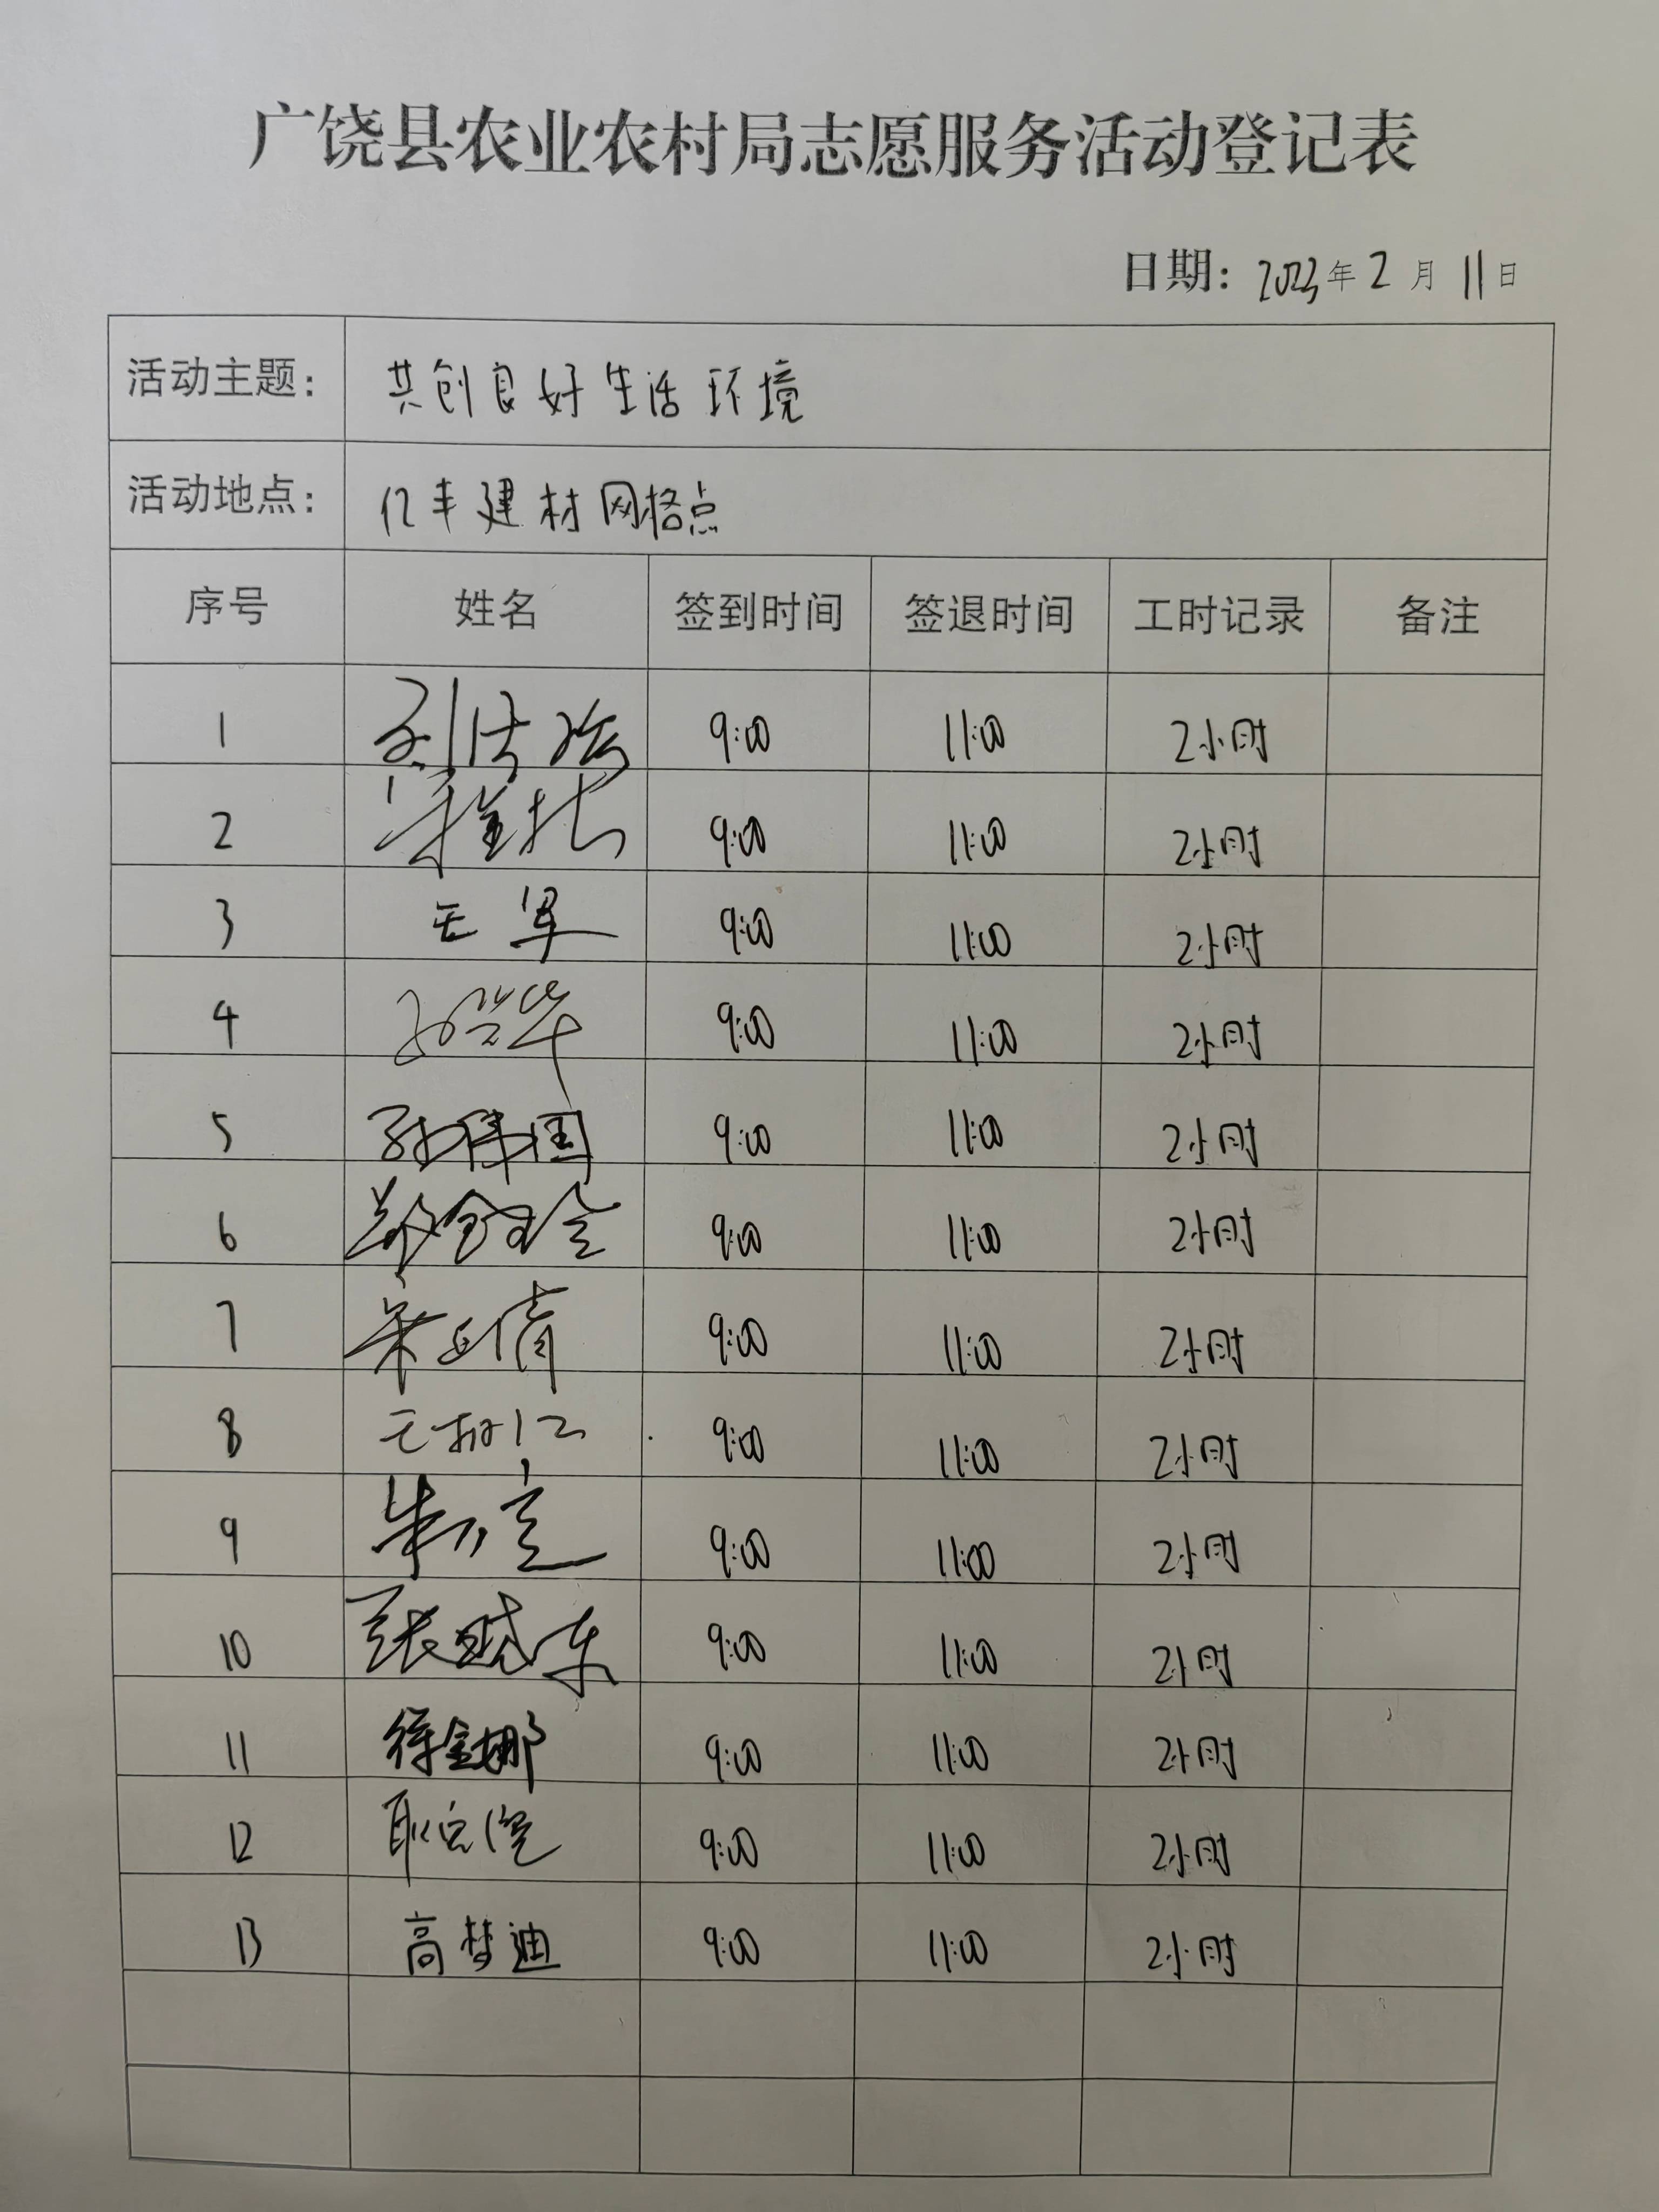 广饶县农业农村局志愿服务活动登记表
日期：2023年2月11日
活动主题： 共创良好生活环境
活动地点： 亿丰建材网格点
序号 姓名 签到时间 签退时间 工时记录 备注
1 9:00 11:00 2小时
2 9:00 11:00 2小时
3 王军 9:00 11:00 2小时
4 9:00 11:00 2小时
5 孙伟国 9:00 11:00 2小时
6 9:00 11:00 2小时
7 9:00 11:00 2小时
8 9:00 11:00 2小时
9 9:00 11:00 2小时
10 张晓东 9:00 11:00 2小时
11 徐金娜 9:00 11:00 2小时
12 9:00 11:00 2小时
13 高梦迪 9:00 11:00 2小时